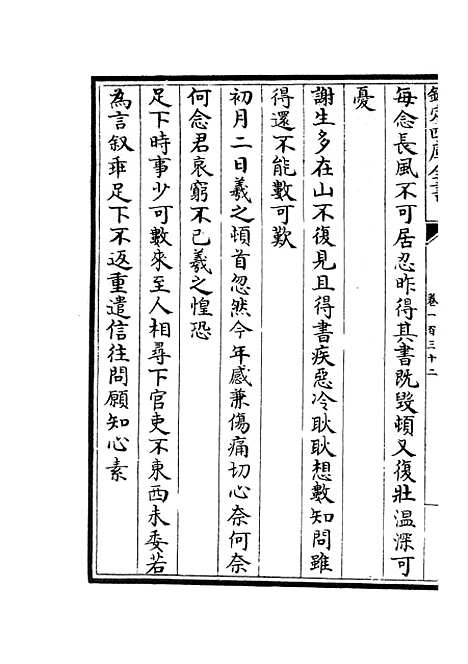 欽定四庫全書
卷一百三十二
每念長風不可居忍昨得其書既毀頓又復壯溫深可
憂
謝生多在山不復見且得書疾惡冷耿耿想數知問雖
得還不能數可歎
初月二日羲之頓首忽然今年感兼傷痛切心奈何奈
何念君哀窮不已羲之惶恐
足下時事少可數來至人相尋下官吏不東西未委若
為言叙乖足下不返重遣信往問願知心素